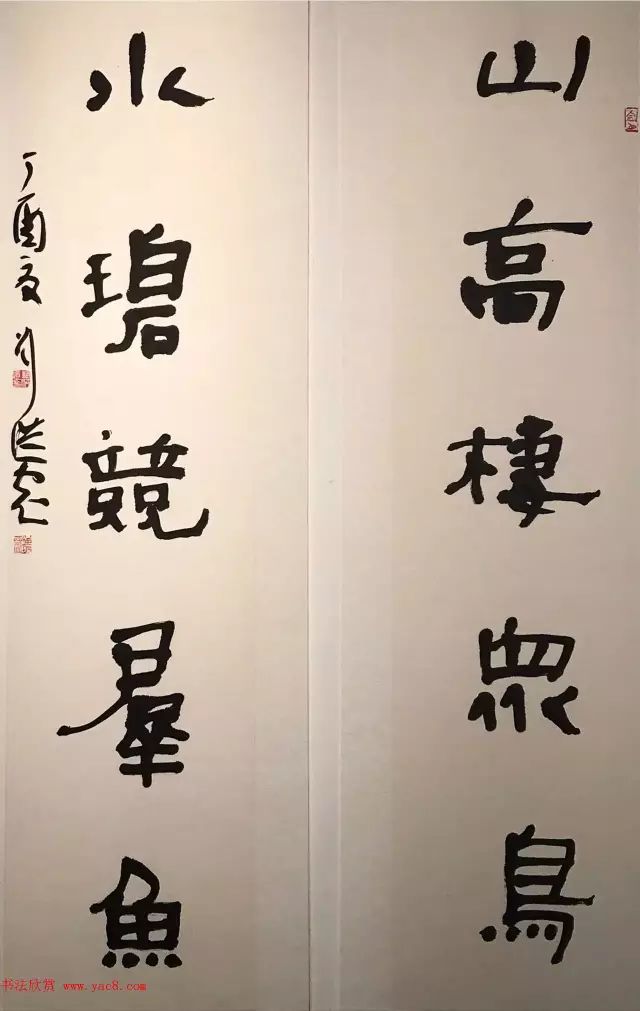 山高棲眾鳥
水碧競羣魚
丁酉夏月洪彪
书法欣赏 www.yac8.com